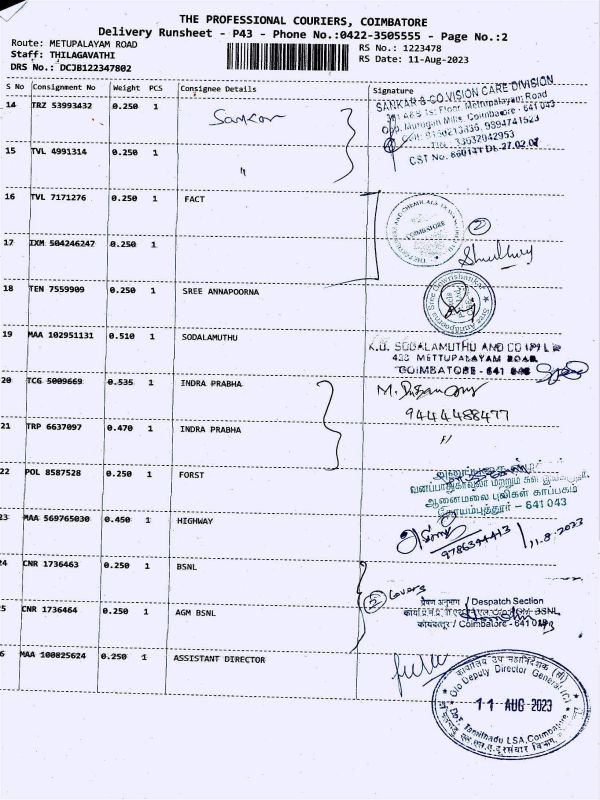 THE PROFESSIONAL COURIERS, COIMBATORE
Delivery Runsheet - P43 - Phone No.:0422-3505555 - Page No.:2
Route: METUPALAYAM ROAD RS No.: 1223478
Staff: THILAGAVATHI RS Date: 11-Aug-2023
DRS No.: DCJB122347802
S No Consignment No Weight PCS Consignee Details Signature
14 TRZ 53993432 0.250 1 Sankar
SANKAR & CO VISION CARE DIVISION
1st Floor, Mettupalayam Road
Opp. Murugan Mills, Coimbatore - 641 043
15 TVL 4991314 0.250 1 "
16 TVL 7171276 0.250 1 FACT
COIMBATORE
2
17 IXM 504246247 0.250 1
18 TEN 7559909 0.250 1 SREE ANNAPOORNA
19 MAA 102951131 0.510 1 SODALAMUTHU
SODALAMUTHU AND CO
METTUPALAYAM ROAD
COIMBATORE - 641
20 TCG 5009669 0.535 1 INDRA PRABHA
9444488477
21 TRP 6637097 0.470 1 INDRA PRABHA "
22 POL 8587528 0.250 1 FORST
ஆனைமலை புலிகள் காப்பகம்
கோயம்புத்தூர் - 641 043
23 MAA 569765030 0.450 1 HIGHWAY
11.8.2023
24 CNR 1736463 0.250 1 BSNL
2 Covers
प्रेषण अनुभाग / Despatch Section
BSNL
कोयंबत्तूर / Coimbatore - 641 043
25 CNR 1736464 0.250 1 AGM BSNL
26 MAA 100825624 0.250 1 ASSISTANT DIRECTOR
कार्यालय उप महानिदेशक (सी)
O/o Deputy Director General (C)
11 AUG 2023
DoT, Tamilnadu LSA, Coimbatore